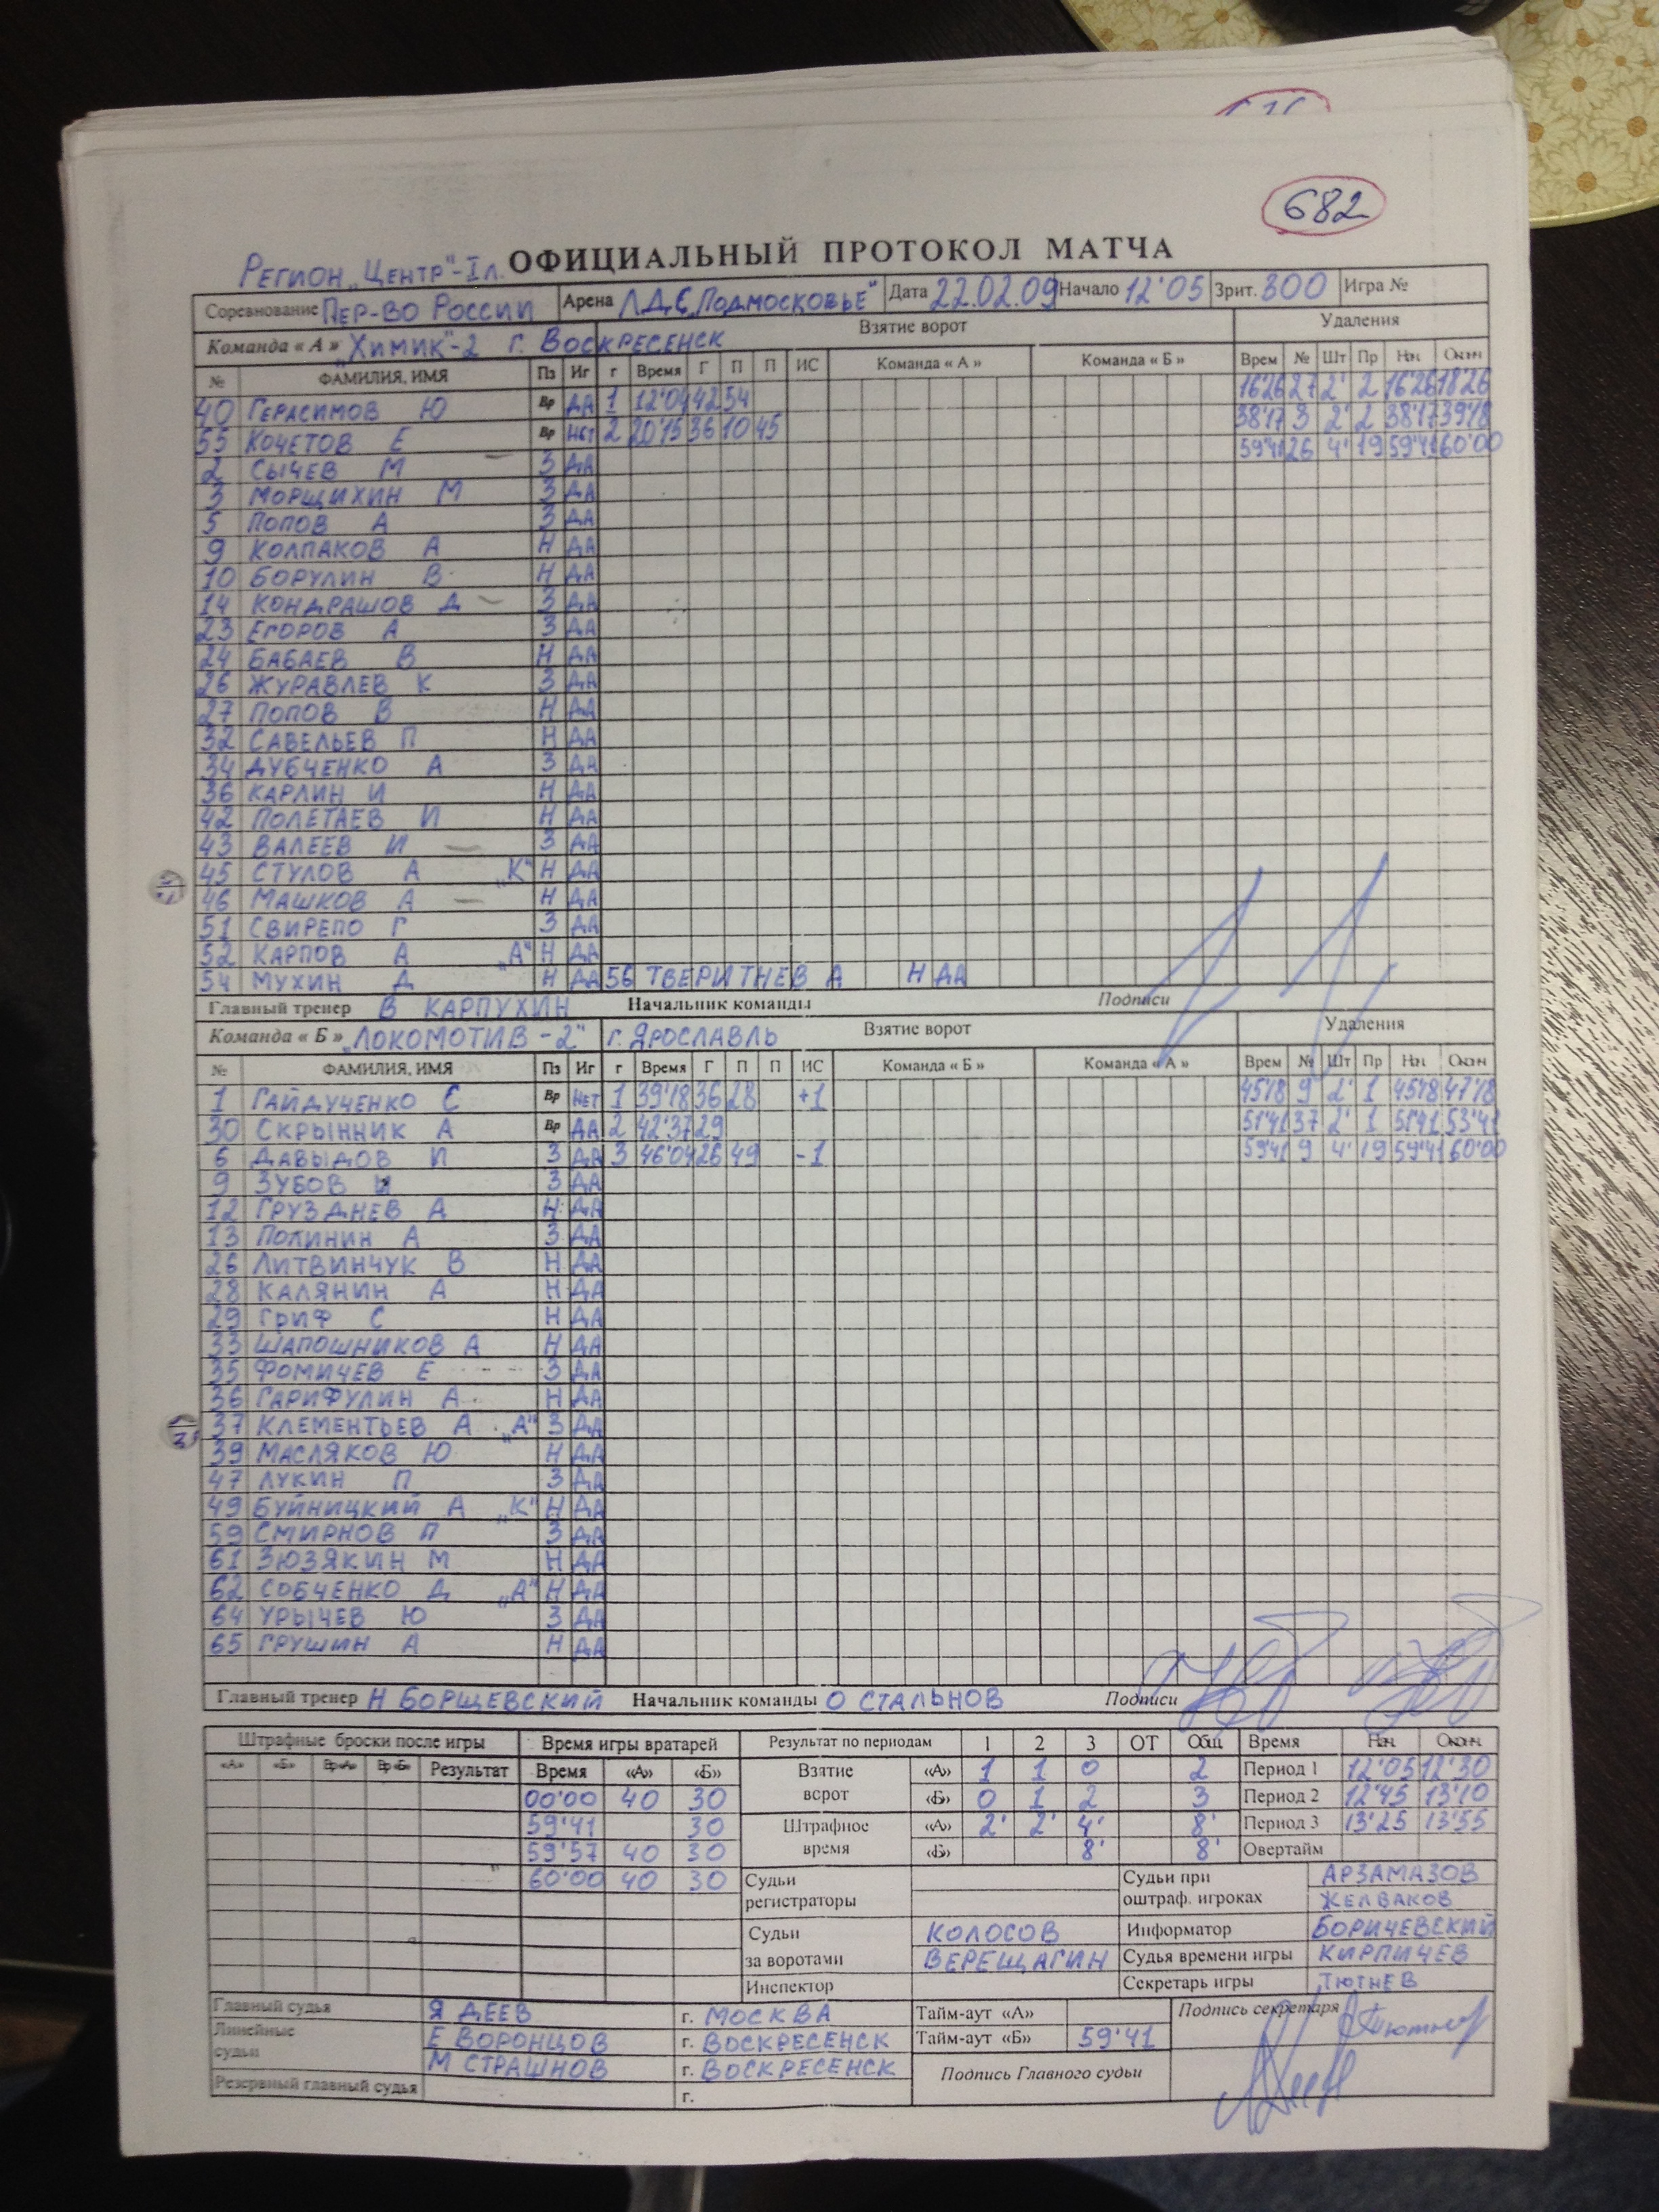 682
Регион „Центр"-I л. ОФИЦИАЛЬНЫЙ ПРОТОКОЛ МАТЧА
Соревнование Пер-во России Арена ЛДС „Подмосковье" Дата 22.02.09 Начало 12'05 Зрит. 300 Игра №
Команда «А» „Химик"-2 г. Воскресенск Взятие ворот Удаления
№ ФАМИЛИЯ, ИМЯ Пз Иг г Время Г П П ИС Команда «А» Команда «Б» Врем № Шт Пр Нач Оконч
40 ГЕРАСИМОВ Ю Вр ДА 1 12'04 42 54 16'26 27 2' 2 16'26 18'26
55 КОЧЕТОВ Е Вр НЕТ 2 20'15 36 10 45 38'17 3 2' 2 38'17 39'18
2 СЫЧЕВ М З ДА 59'41 26 4' 19 59'41 60'00
3 МОРЩИХИН М З ДА
5 ПОПОВ А З ДА
9 КОЛПАКОВ А Н ДА
10 БОРУЛИН В Н ДА
14 КОНДРАШОВ Д З ДА
23 ЕГОРОВ А З ДА
24 БАБАЕВ В Н ДА
26 ЖУРАВЛЕВ К З ДА
27 ПОПОВ В Н ДА
32 САВЕЛЬЕВ П Н ДА
34 ДУБЧЕНКО А З ДА
36 КАРЛИН И Н ДА
42 ПОЛЕТАЕВ И Н ДА
43 ВАЛЕЕВ И З ДА
45 СТУЛОВ А „К" Н ДА
46 МАШКОВ А Н ДА
51 СВИРЕПО Г З ДА
52 КАРПОВ А „А" Н ДА
54 МУХИН Д Н ДА 56 ТВЕРИТНЕВ А Н ДА
Главный тренер В КАРПУХИН Начальник команды Подписи
Команда «Б» „ЛОКОМОТИВ-2" г. ЯРОСЛАВЛЬ Взятие ворот Удаления
№ ФАМИЛИЯ, ИМЯ Пз Иг г Время Г П П ИС Команда «Б» Команда «А» Врем № Шт Пр Нач Оконч
1 ГАЙДУЧЕНКО С Вр НЕТ 1 39'18 36 28 +1 45'18 9 2' 1 45'18 47'18
30 СКРЫННИК А Вр ДА 2 42'37 29 51'41 37 2' 1 51'41 53'41
6 ДАВЫДОВ И З ДА 3 46'04 26 49 -1 59'41 9 4' 19 59'41 60'00
9 ЗУБОВ И З ДА
12 ГРУЗДНЕВ А Н ДА
13 ПОЛИНИН А З ДА
26 ЛИТВИНЧУК В Н ДА
28 КАЛЯНИН А Н ДА
29 ГРИФ С Н ДА
33 ШАПОШНИКОВ А Н ДА
35 ФОМИЧЕВ Е З ДА
36 ГАРИФУЛИН А Н ДА
37 КЛЕМЕНТЬЕВ А „А" З ДА
39 МАСЛЯКОВ Ю Н ДА
47 ЛУКИН П З ДА
49 БУЙНИЦКИЙ А „К" Н ДА
59 СМИРНОВ П З ДА
61 ЗЮЗЯКИН М Н ДА
62 СОБЧЕНКО Д „А" Н ДА
64 УРЫЧЕВ Ю З ДА
65 ГРУШИН А Н ДА
Главный тренер Н БОРЩЕВСКИЙ Начальник команды О СТАЛЬНОВ Подписи
Штрафные броски после игры Время игры вратарей Результат по периодам 1 2 3 ОТ Общ Время Нач. Оконч.
«А» «Б» Вр«А» Вр«Б» Результат Время «А» «Б» Взятие ворот «А» 1 1 0 2 Период 1 12'05 12'30
00'00 40 30 «Б» 0 1 2 3 Период 2 12'45 13'10
59'41 30 Штрафное время «А» 2' 2' 4' 8' Период 3 13'25 13'55
59'57 40 30 «Б» 8' 8' Овертайм
60'00 40 30 Судьи регистраторы Судьи при оштраф. игроках АРЗАМАЗОВ
ЖЕЛВАКОВ
Судьи за воротами КОЛОСОВ Информатор БОРИЧЕВСКИЙ
ВЕРЕЩАГИН Судья времени игры КИРПИЧЕВ
Инспектор Секретарь игры ТЮТНЕВ
Главный судья Я ДЕЕВ г. МОСКВА Тайм-аут «А» Подпись секретаря
Линейные судьи Е ВОРОНЦОВ г. ВОСКРЕСЕНСК Тайм-аут «Б» 59'41
М СТРАШНОВ г. ВОСКРЕСЕНСК Подпись Главного судьи
Резервный главный судья г.